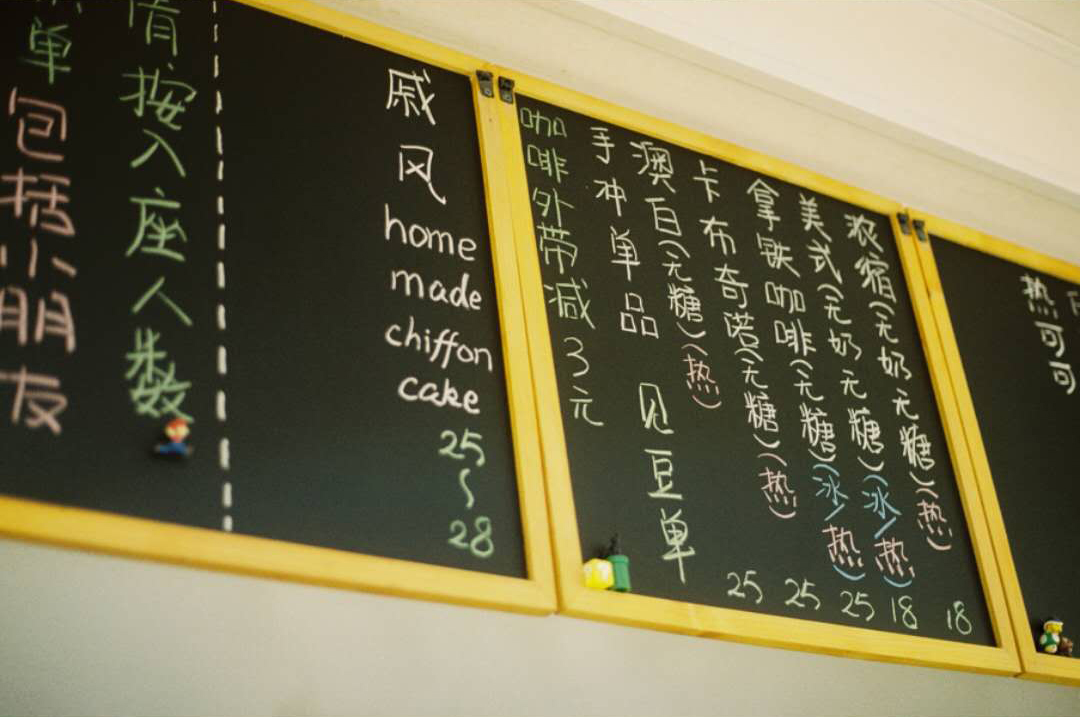 热可可
浓宿(无奶无糖)(热) 18
美式(无奶无糖)(冰/热) 18
拿铁咖啡(无糖)(冰/热) 25
卡布奇诺(无糖)(热) 25
澳白(无糖)(热) 25
手冲单品 见豆单
咖啡外带减3元
戚风
home
made
chiffon
cake
25
~
28
按入座人数
单包括小朋友